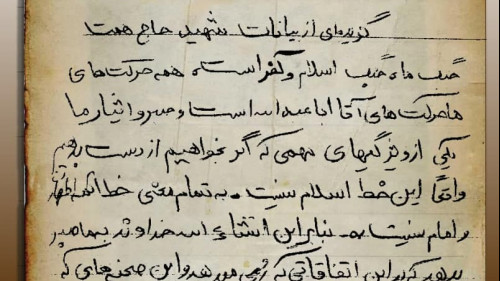 گزیده‌ای از بیانات شهید حاج همت
جنگ ما، جنگ اسلام و کفر است، همه حرکت‌های
ما حرکت‌های آقا اباعبدالله است و صبر و ایثار ما
یکی از ویژگیهای مهمی که اگر بخواهیم از دست بدهیم
واقعاً این خط اسلام نیست. به تمام معنی خط ائمه اطهار
و امام نیست. بنابراین انشاءالله خداوند به ما صبر
بدهد که بر این اتفاقاتی که می‌دهد و این صحنه‌های که